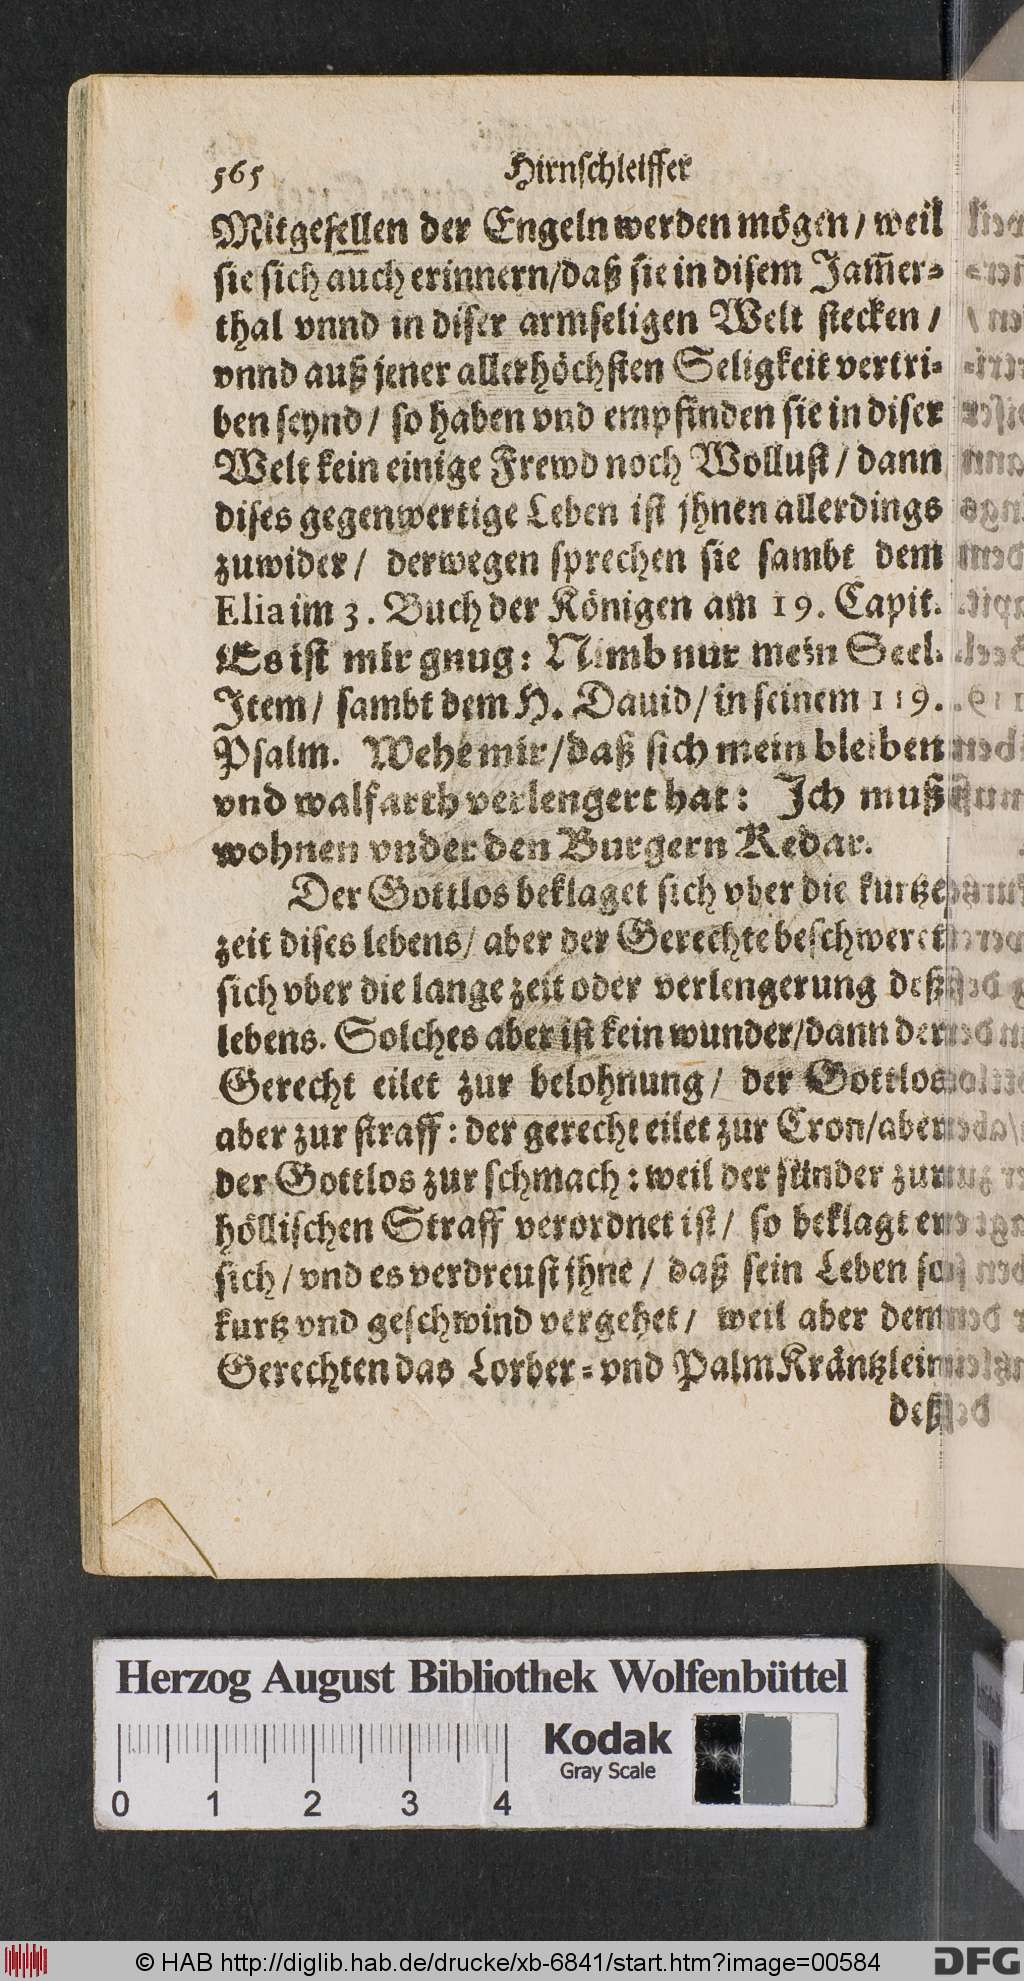 565 Hirnschleiffer
Mitgesellen der Engeln werden mögen / weil
sie sich auch erinnern/daß sie in disem Jam̃er-
thal vnnd in diser armseligen Welt stecken /
vnnd auß jener allerhöchsten Seligkeit vertri-
ben seynd / so haben vnd empfinden sie in diser
Welt kein einige Frewd noch Wollust / dann
dises gegenwertige Leben ist jhnen allerdings
zuwider / derwegen sprechen sie sambt dem
Elia im 3. Buch der Königen am 19. Capit.
Es ist mir gnug: Nimb nur mein Seel.
Item / sambt dem H. Dauid / in seinem 119.
Psalm. Wehe mir/daß sich mein bleiben
vnd walfarth verlengert hat: Ich muß
wohnen vnder den Burgern Kedar.
Der Gottlos beklaget sich vber die kurtze
zeit dises lebens/ aber der Gerechte beschweret
sich vber die lange zeit oder verlengerung deß
lebens. Solches aber ist kein wunder/dann der
Gerecht eilet zur belohnung / der Gottlos
aber zur straff: der gerecht eilet zur Cron/aber
der Gottlos zur schmach: weil der sünder zur
höllischen Straff verordnet ist / so beklagt er
sich / vnd es verdreust jhne / daß sein Leben so
kurtz vnd geschwind vergehet / weil aber dem
Gerechten das Lorber- vnd Palm Kräntzlein
deß
Herzog August Bibliothek Wolfenbüttel
Kodak
Gray Scale
0 1 2 3 4
© HAB http://diglib.hab.de/drucke/xb-6841/start.htm?image=00584
DFG